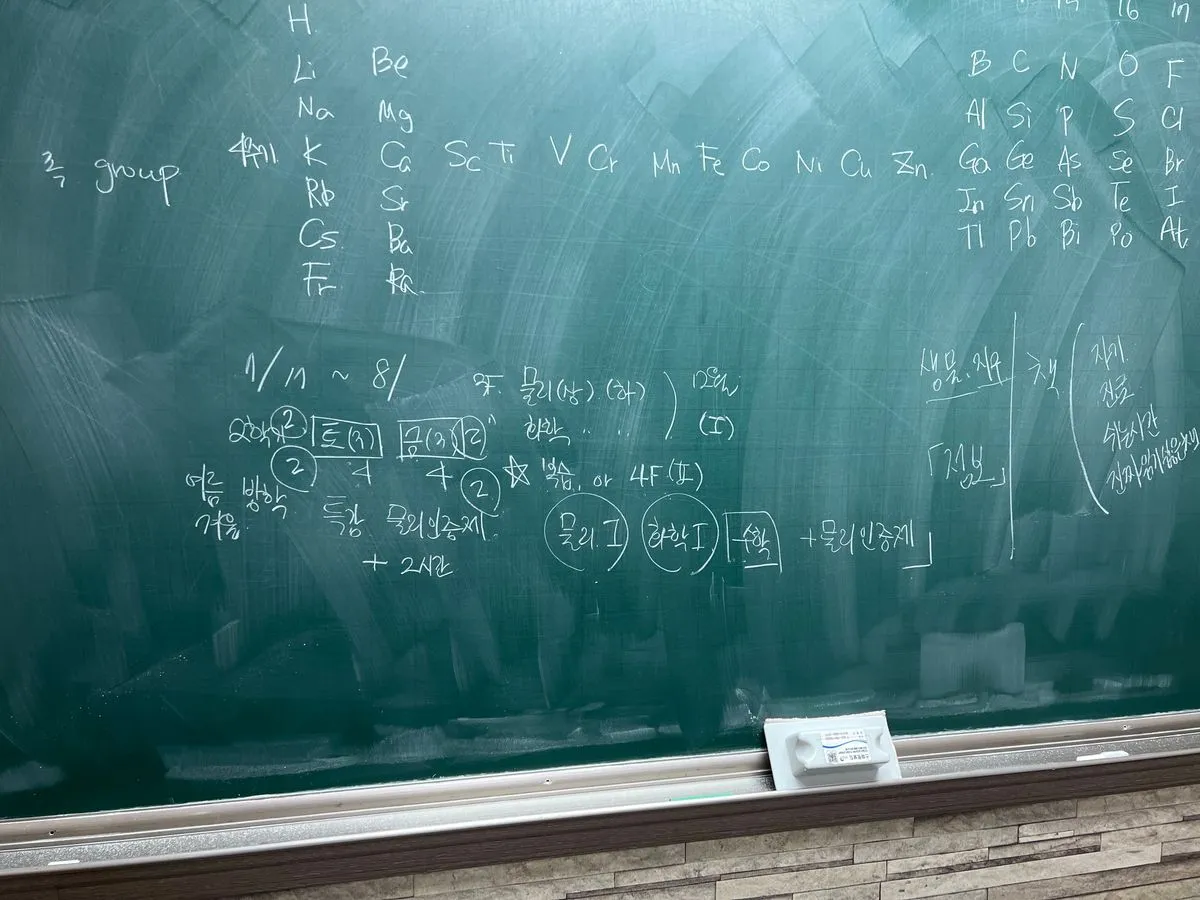 16 17
H
Li Be B C N O F
Na Mg Al Si P S Cl
족 group 4주기 K Ca Sc Ti V Cr Mn Fe Co Ni Cu Zn Ga Ge As Se Br
Rb Sr In Sn Sb Te I
Cs Ba Tl Pb Bi Po At
Fr Ra
1/11 ~ 8/
2학기 2 토(3) 금(3) 2
2 4 4 2
여름 방학
겨울 특강 물리인증제
+ 2시간
물리(상) (하)
화학 〃 〃 (I)
☆ 복습, or 4F (II)
물리 I 화학 I 수학 + 물리인증제
생물.지구
「정보」
자기
진로
쉬는시간